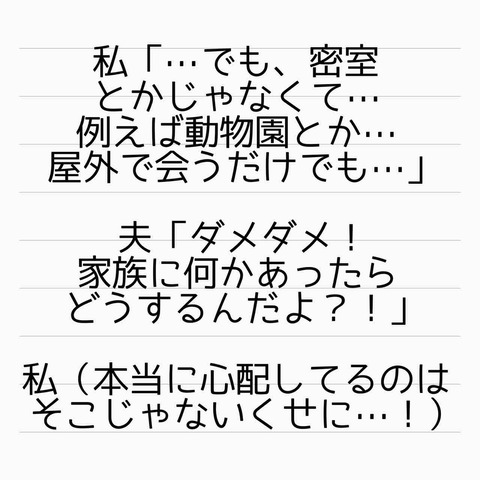 私「…でも、密室
とかじゃなくて…
例えば動物園とか…
屋外で会うだけでも…」
夫「ダメダメ！
家族に何かあったら
どうするんだよ？！」
私（本当に心配してるのは
そこじゃないくせに…！）